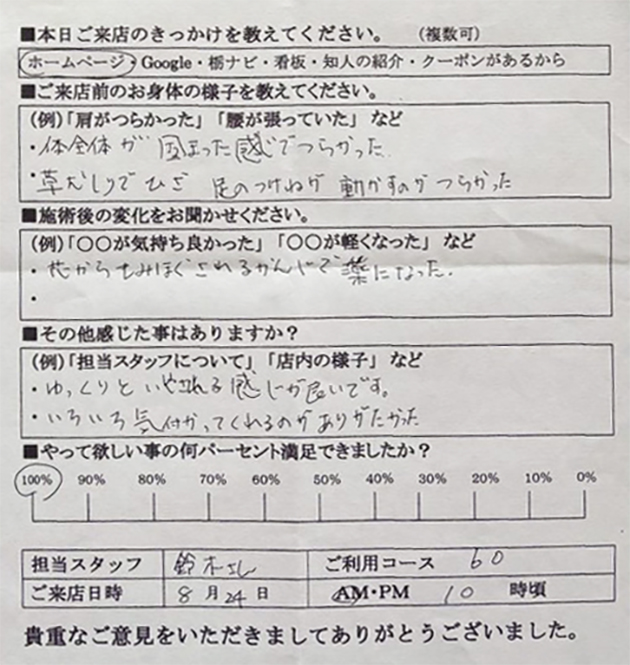 ■本日ご来店のきっかけを教えてください。 (複数可)
ホームページ・Google・栃ナビ・看板・知人の紹介・クーポンがあるから
■ご来店前のお身体の様子を教えてください。
(例)「肩がつらかった」「腰が張っていた」など
・体全体が 固まった感じでつらかった.
・草むしりでひざ 足のつけねが 動かすのがつらかった
■施術後の変化をお聞かせください。
(例)「〇〇が気持ち良かった」「〇〇が軽くなった」など
・芯からもみほぐされるかんじで 薬になった.
・
■その他感じた事はありますか?
(例)「担当スタッフについて」「店内の様子」など
・ゆっくりといやされる感じが良いです。
・いろいろ気付かってくれるのがありがたかった
■やって欲しい事の何パーセント満足できましたか?
100% 90% 80% 70% 60% 50% 40% 30% 20% 10% 0%
担当スタッフ 鈴木 ご利用コース 60
ご来店日時 8月24日 AM・PM 10 時頃
貴重なご意見をいただきましてありがとうございました。